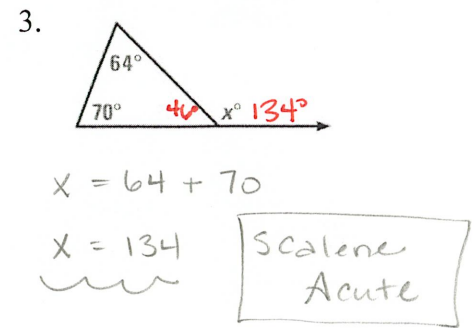 3.
64°
70° 46° x° 134°
x = 64 + 70
x = 134
Scalene
Acute